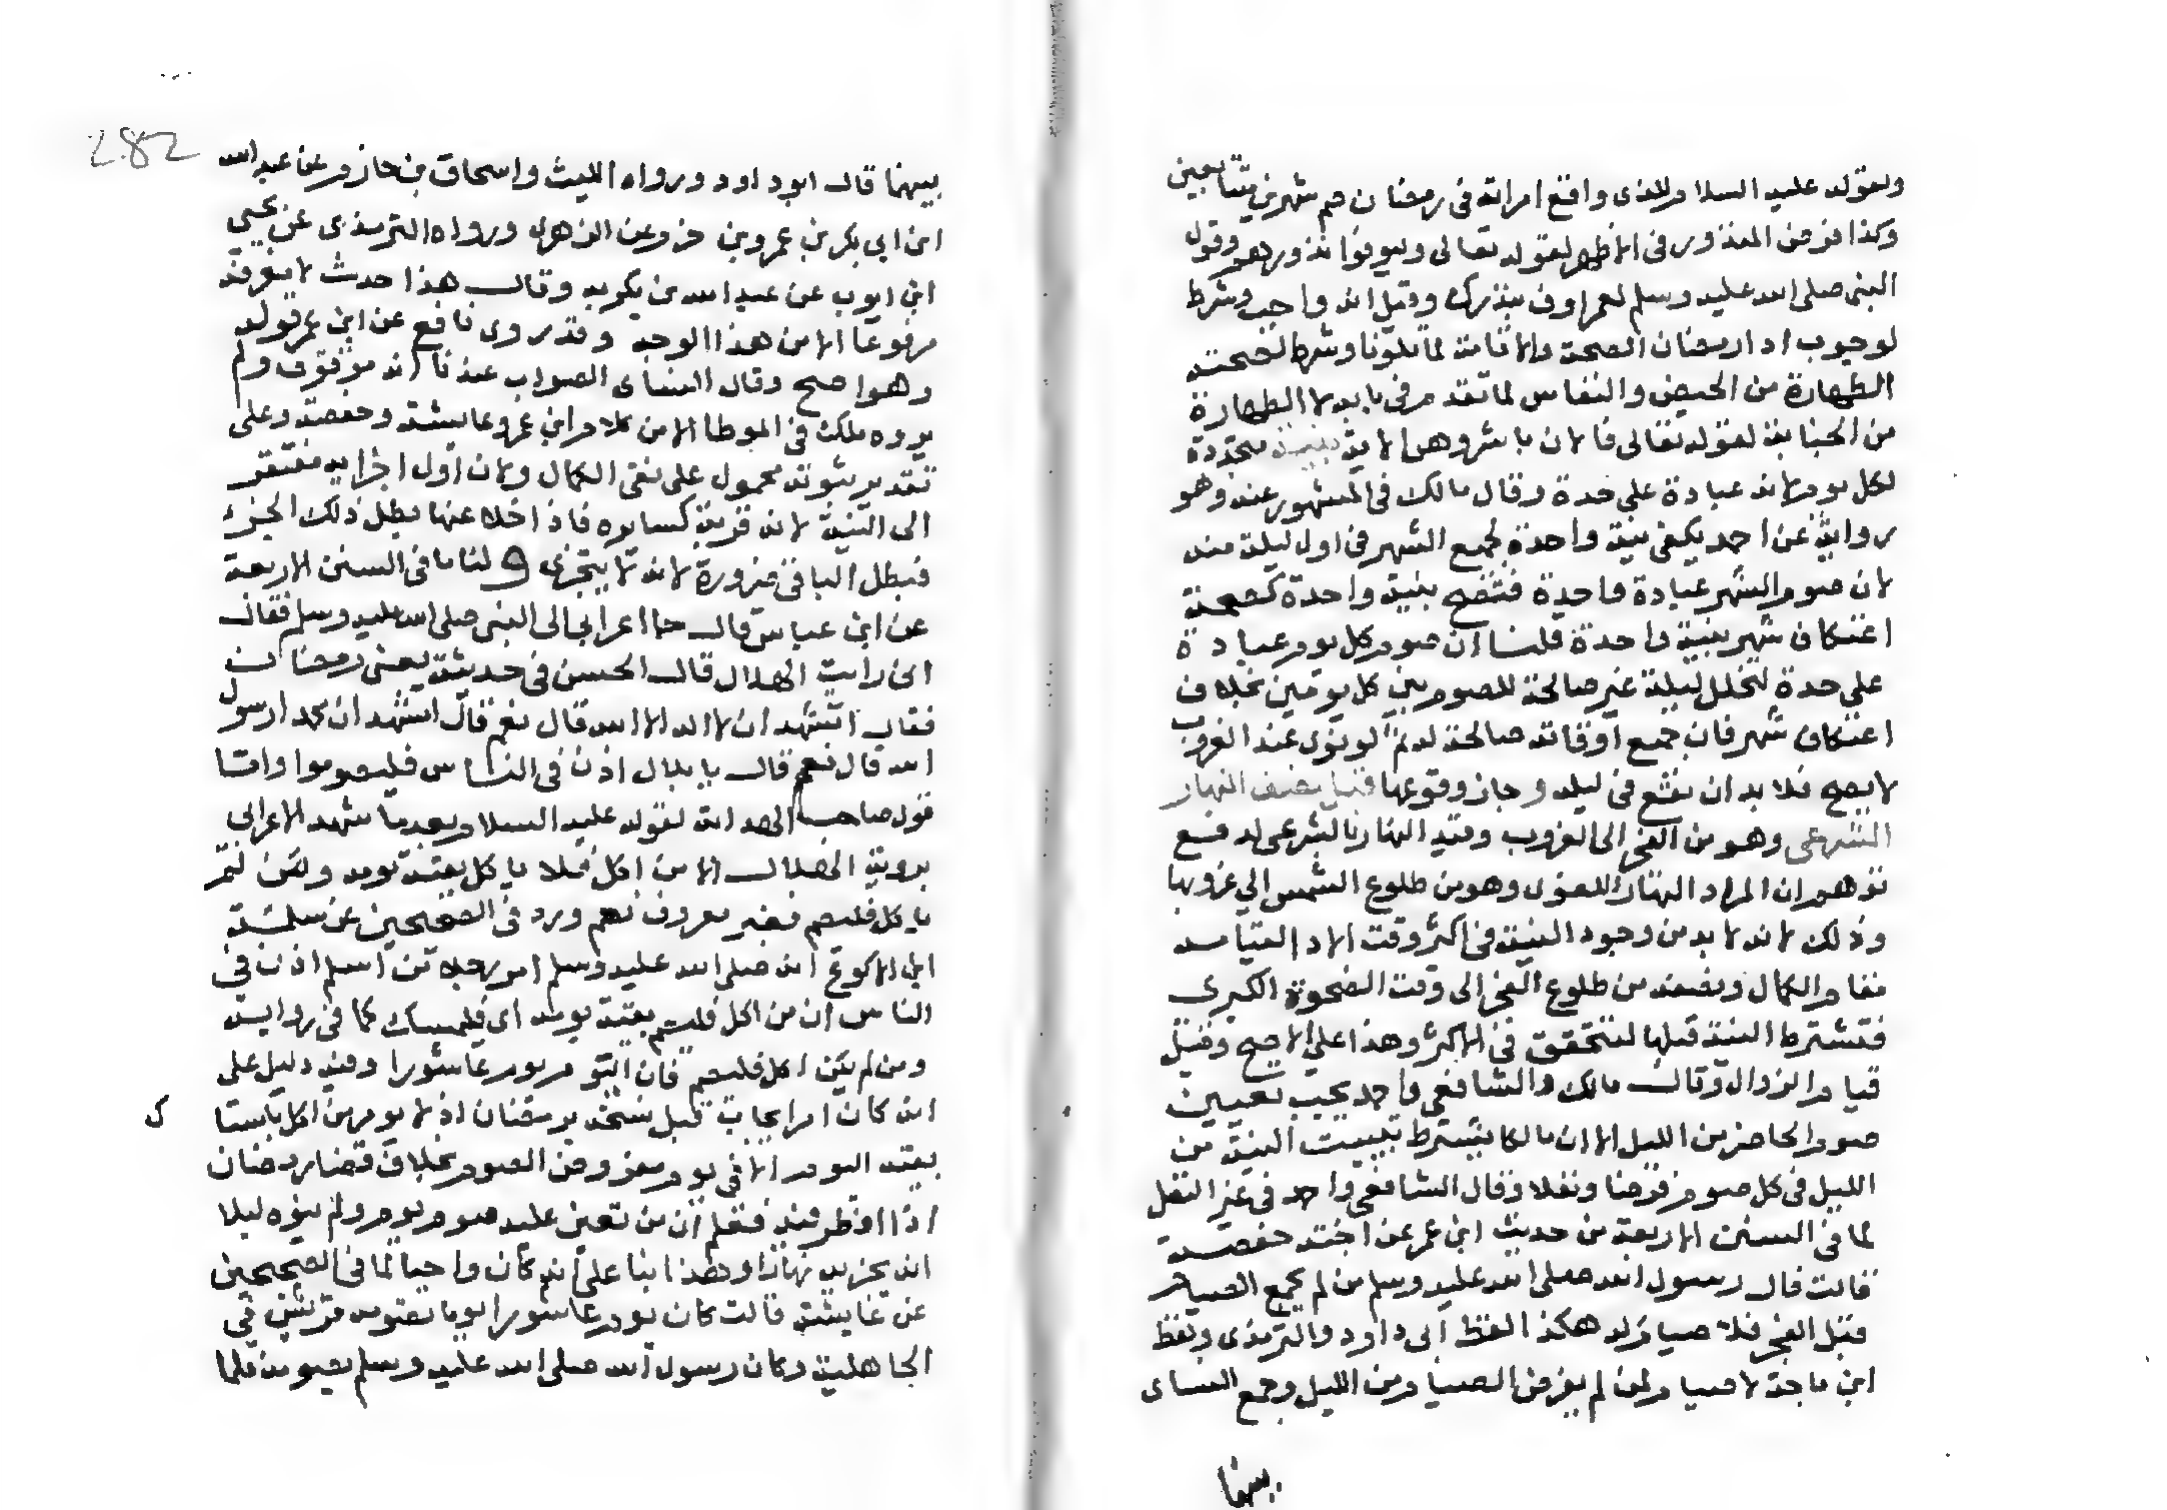 ولقوله عليه السلام للذي واقع امراته في رمضان صم شهرين متتابعين
وكذا فرض المنذور في الاظهر لقوله تعالى وليوفوا نذورهم وقول
النبي صلى الله عليه وسلم لعمر اوف بنذرك وقيل انه واجب وشرط
لوجوب ادا رمضان الصحة والاقامة لما تلونا وشرط لصحته
الطهارة من الحيض والنفاس لما تقدم في بابه لا الطهارة
من الجنابة لقوله تعالى فالان باشروهن الاية بنية متجددة
لكل يوم لانه عبادة على حدة وقال مالك في المشهور عنه وهو
رواية عن احمد يكفي بنية واحدة لجميع الشهر في اول ليلة منه
لان صوم الشهر عبادة واحدة فتصح بنية واحدة كصحة
اعتكاف شهر بنية واحدة قلنا ان صوم كل يوم عبادة
على حدة لتخلل ليلة غير صالحة للصوم بين كل يومين بخلاف
اعتكاف شهر فان جميع اوقاته صالحة له ثم لو نوى عند الغروب
لا يصح فلا بد ان تقع في ليله وجاز وقوعها قبل نصف النهار
الشرعي وهو من الفجر الى الغروب وقيد النهار بالشرعي لدفع
توهم ان المراد النهار اللغوي وهو من طلوع الشمس الى غروبها
وذلك لانه لا بد من وجود النية في اكثر وقت الاداء لقيامه
مقام الكمال ونصفه من طلوع الفجر الى وقت الضحوة الكبرى
فتشترط النية قبلها لتتحقق في الاكثر وهذا على الاصح وقيل
قيام الزوال وقال مالك والشافعي واحمد يجب تعيين
صوم الحاضر من الليل الا ان مالكا يشترط تبييت النية من
الليل في كل صوم فرضا ونفلا وقال الشافعي واحمد في غير النفل
لما في السنن الاربعة من حديث ابن عمر عن اخته حفصة
قالت قال رسول الله صلى الله عليه وسلم من لم يجمع الصيام
قبل الفجر فلا صيام له هكذا لفظ ابي داود والترمذي ولفظ
ابن ماجة لا صيام لمن لم يفرض الصيام من الليل وجمع النساي
بينهما
282
بينهما قال ابو داود ورواه الليث واسحاق بن حازم عن عبد الله
ابن ابي بكر بن عمرو بن حزم عن الزهري ورواه الترمذي عن يحيى
ابن ايوب عن عبد الله بن بكر به وقال هذا حدث لا نعرفه
مرفوعا الا من هذا الوجه وقد روى نافع عن ابن عمر قوله
وهو اصح وقال النساى الصواب عندنا انه موقوف ولم
يروه ملك في الموطا الا من كلام ابن عمر وعايشة وحفصة وعلى
تقدير ثبوته محمول على نفي الكمال ولان اول اجزايه مفتقر
الى النية لانه قربة كسايره فاذا خلا عنها بطل ذلك الجزء
فبطل الباقي ضرورة لانه لا يتجزى ولنا ما في السنن الاربعة
عن ابن عباس قال جا اعرابي الى النبي صلى الله عليه وسلم فقال
اني رايت الهلال قال الحسن في حديثه يعني رمضان
فقال اتشهد ان لا اله الا الله قال نعم قال اتشهد ان محمدا رسول
الله قال نعم قال يا بلال اذن في الناس فليصوموا واما
قول صاحب الهداية لقوله عليه السلام بعد ما شهد الاعرابي
بروية الهلال الا من اكل فلا ياكل بقية يومه ومن لم
ياكل فليصم فغير معروف نعم ورد في الصحيحين عن سلمة
ابن الاكوع انه صلى الله عليه وسلم امر رجلا من اسلم اذن في
الناس ان من اكل فليصم بقية يومه اى فليمسك كما في رواية
ومن لم يكن اكل فليصم فان اليوم يوم عاشورا وفيه دليل على
انه كان امر ايجاب قبل نسخه برمضان اذ لا يومر من اكل بامساك
بقية اليوم الا في يوم مفروض الصوم بخلاف قضا رمضان
اذا افطر فيه فعلم ان من تعين عليه صوم يوم ولم ينوه ليلا
انه يجزيه نهارا وهذا بنا على انه كان واجبا لما في الصحيحين
عن عايشة قالت كان يوم عاشورا يوما تصومه قريش في
الجاهلية وكان رسول الله صلى الله عليه وسلم يصومه فلما